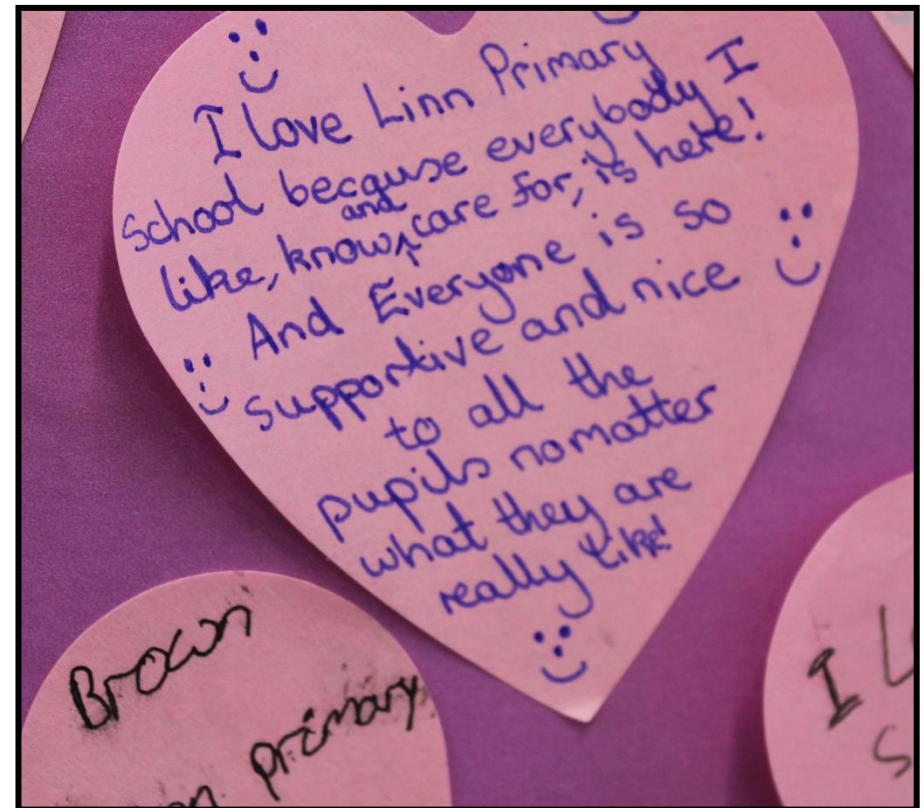 I love Linn Primary
School because everybody I
like, know, and care for, is here!
And Everyone is so
supportive and nice
to all the
pupils nomatter
what they are
really like!
Brown
primary
I